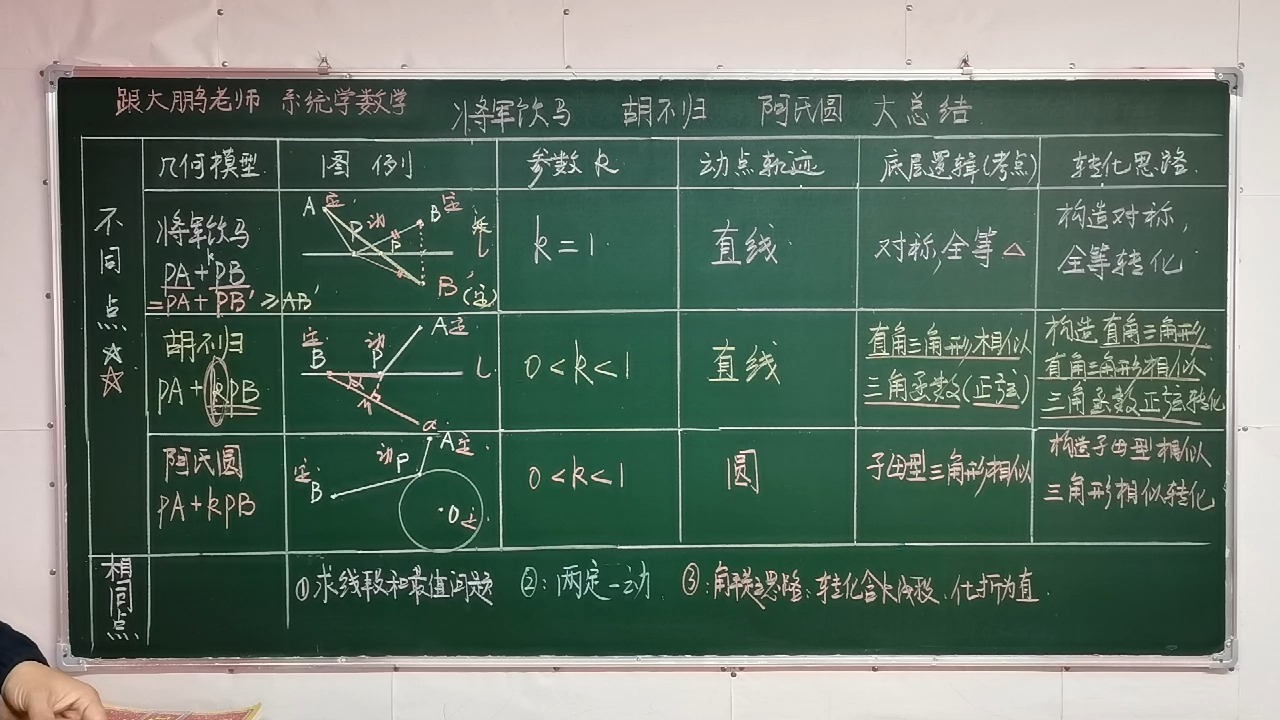 跟大鹏老师 系统学数学
将军饮马 胡不归 阿氏圆 大总结
几何模型 图例 参数k 动点轨迹 底层逻辑(考点) 转化思路
不同点☆☆
将军饮马
k
PA+PB
=PA+PB'≥AB'
A 定
P 动
P
B 定
l
B'(定)
k=1
直线
对称,全等△
构造对称,
全等转化
胡不归
PA+kPB
定
B
动
P
A 定
l
α
H
0<k<1
直线
直角三角形相似
三角函数(正弦)
构造直角三角形
直角三角形相似
三角函数正弦转化
阿氏圆
PA+kPB
定
B
动P
A 定
·O定
0<k<1
圆
子母型三角形相似
构造子母型相似
三角形相似转化
相同点
①求线段和最值问题 ②:两定一动 ③:解题思路:转化含k线段、化折为直